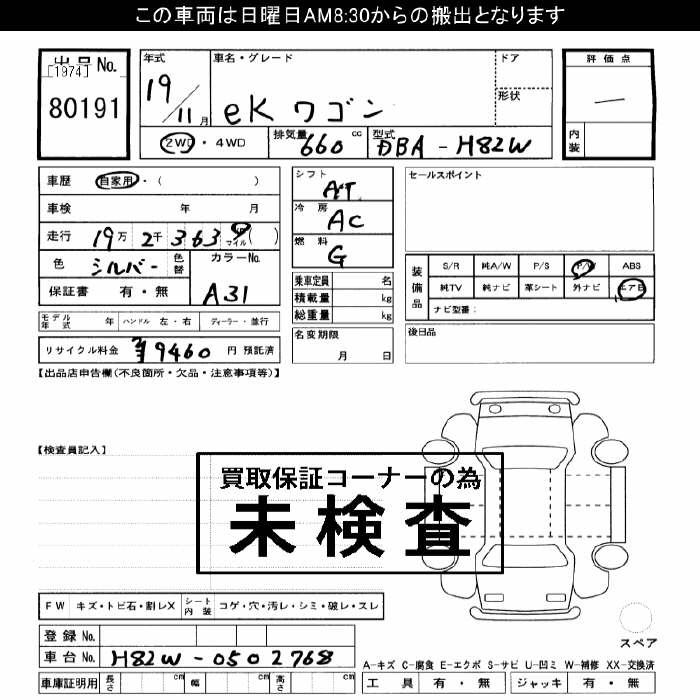 この車両は日曜日AM8:30からの搬出となります
出品No.
[1974]
80191
年式
19/11月
車名・グレード
eK ワゴン
ドア
形状
評価点
—
内装
2WD・4WD
排気量 660 cc
型式 DBA-H82W
車歴 自家用・( )
車検 年 月
走行 19万2千3639 km マイル( )
色 シルバー 色替
カラーNo. A31
保証書 有・無
シフト AT
冷房 AC
燃料 G
乗車定員 名
積載量 kg
総重量 kg
セールスポイント
装備品
S/R 純A/W P/S P/W ABS
純TV 純ナビ 革シート 外ナビ エアB
ナビ型番:
モデル年式 年 ハンドル 左・右 ディーラー・並行
名変期限
月 日
後日品
リサイクル料金 ¥9460 円 預託済
【出品店申告欄(不良箇所・欠品・注意事項等)】
【検査員記入】
買取保証コーナーの為
未検査
FW キズ・トビ石・割レX シート内装 コゲ・穴・汚レ・シミ・破レ・スレ
登録No.
車台No. H82W-0502768
車庫証明用 長さ cm 幅 cm 高さ cm
スペア
A-キズ C-腐食 E-エクボ S-サビ U-凹ミ W-補修 XX-交換済
工具 有・無 ジャッキ 有・無